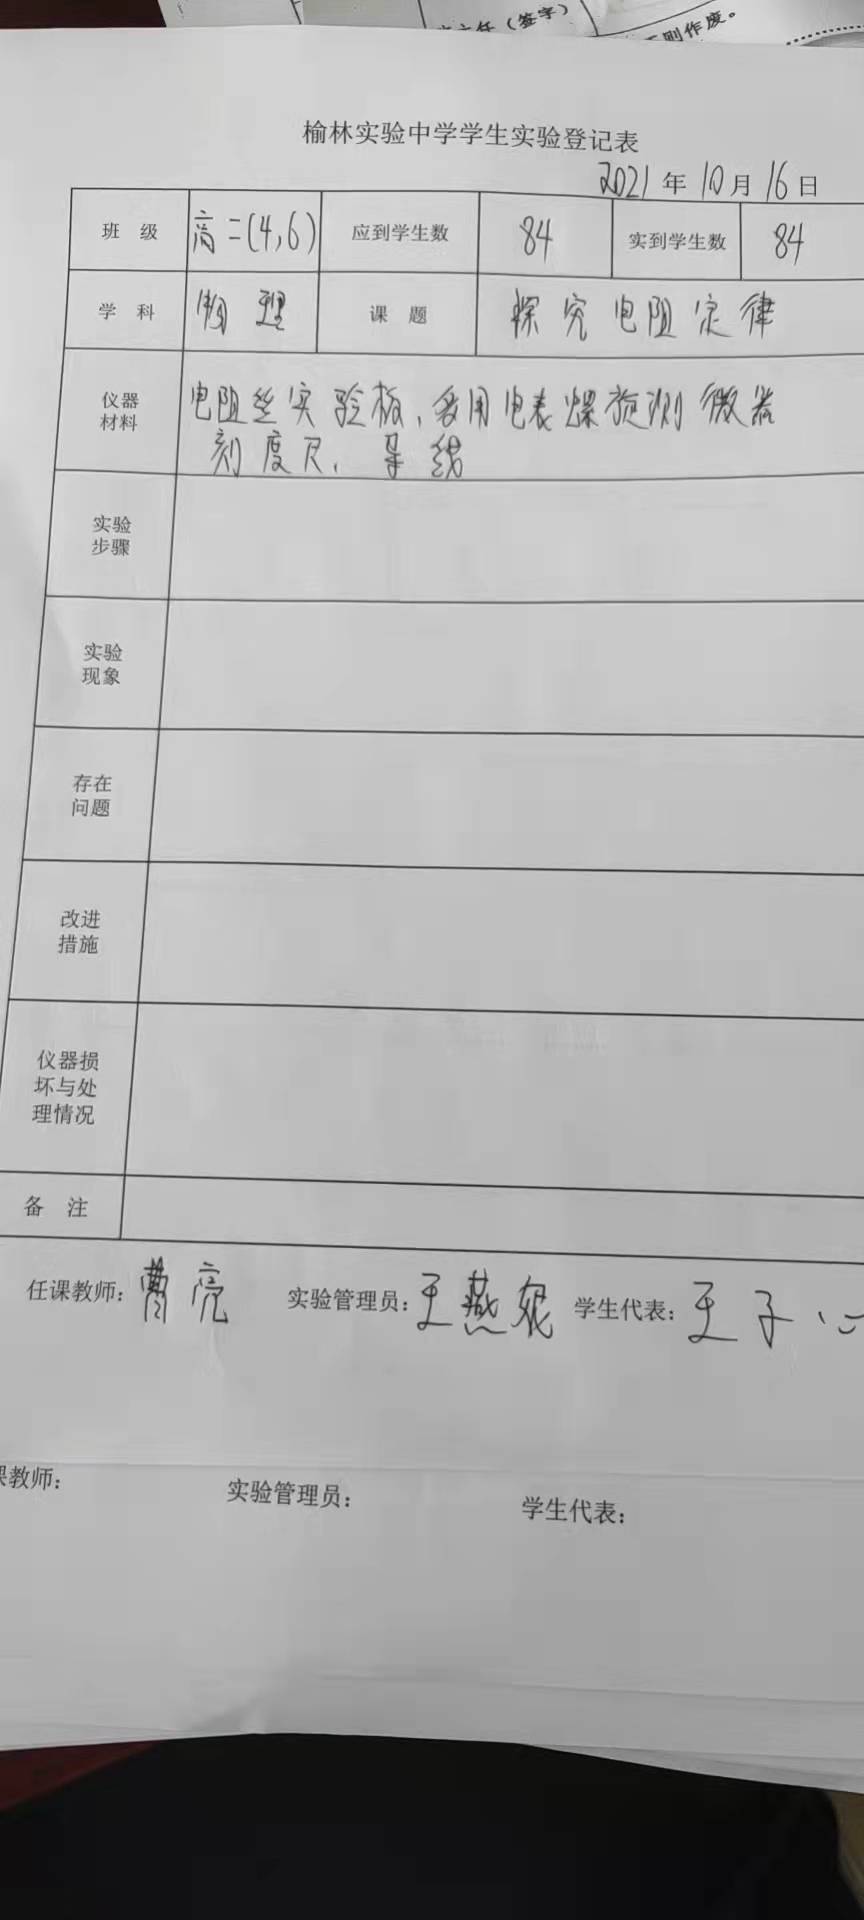 主任（签字）
否则作废。
榆林实验中学学生实验登记表
2021年10月16日
班 级 高二(4,6) 应到学生数 84 实到学生数 84
学 科 物理 课 题 探究电阻定律
仪器
材料
电阻丝实验板、多用电表 螺旋测微器
刻度尺、导线
实验
步骤
实验
现象
存在
问题
改进
措施
仪器损
坏与处
理情况
备 注
任课教师: 曹亮 实验管理员: 王燕妮 学生代表: 王子心
课教师: 实验管理员: 学生代表: